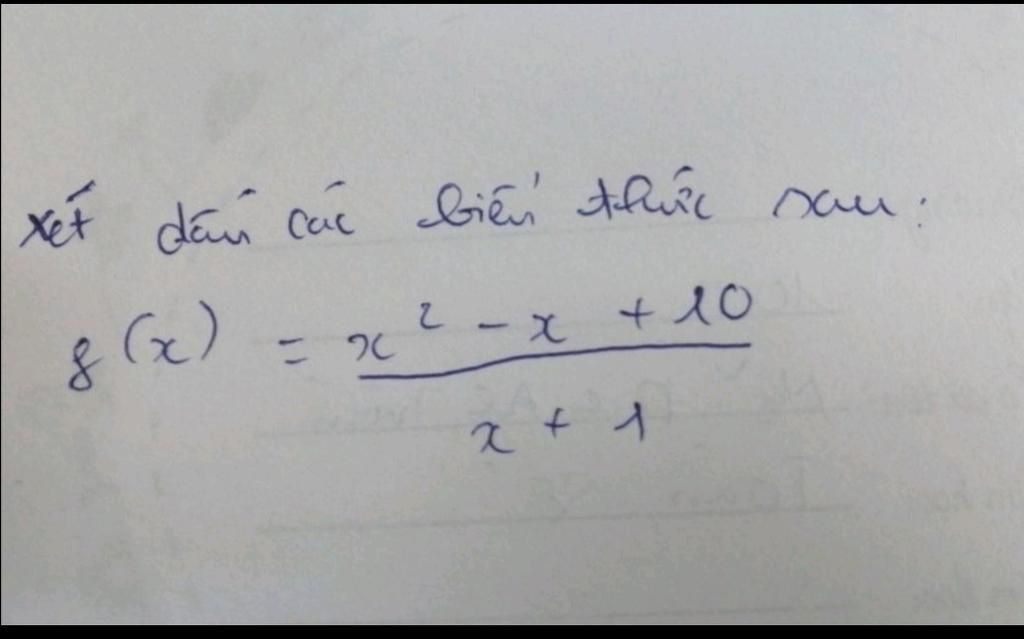 xét dấu các biến thức sau:
f(x) = x² - x + 10
x + 1